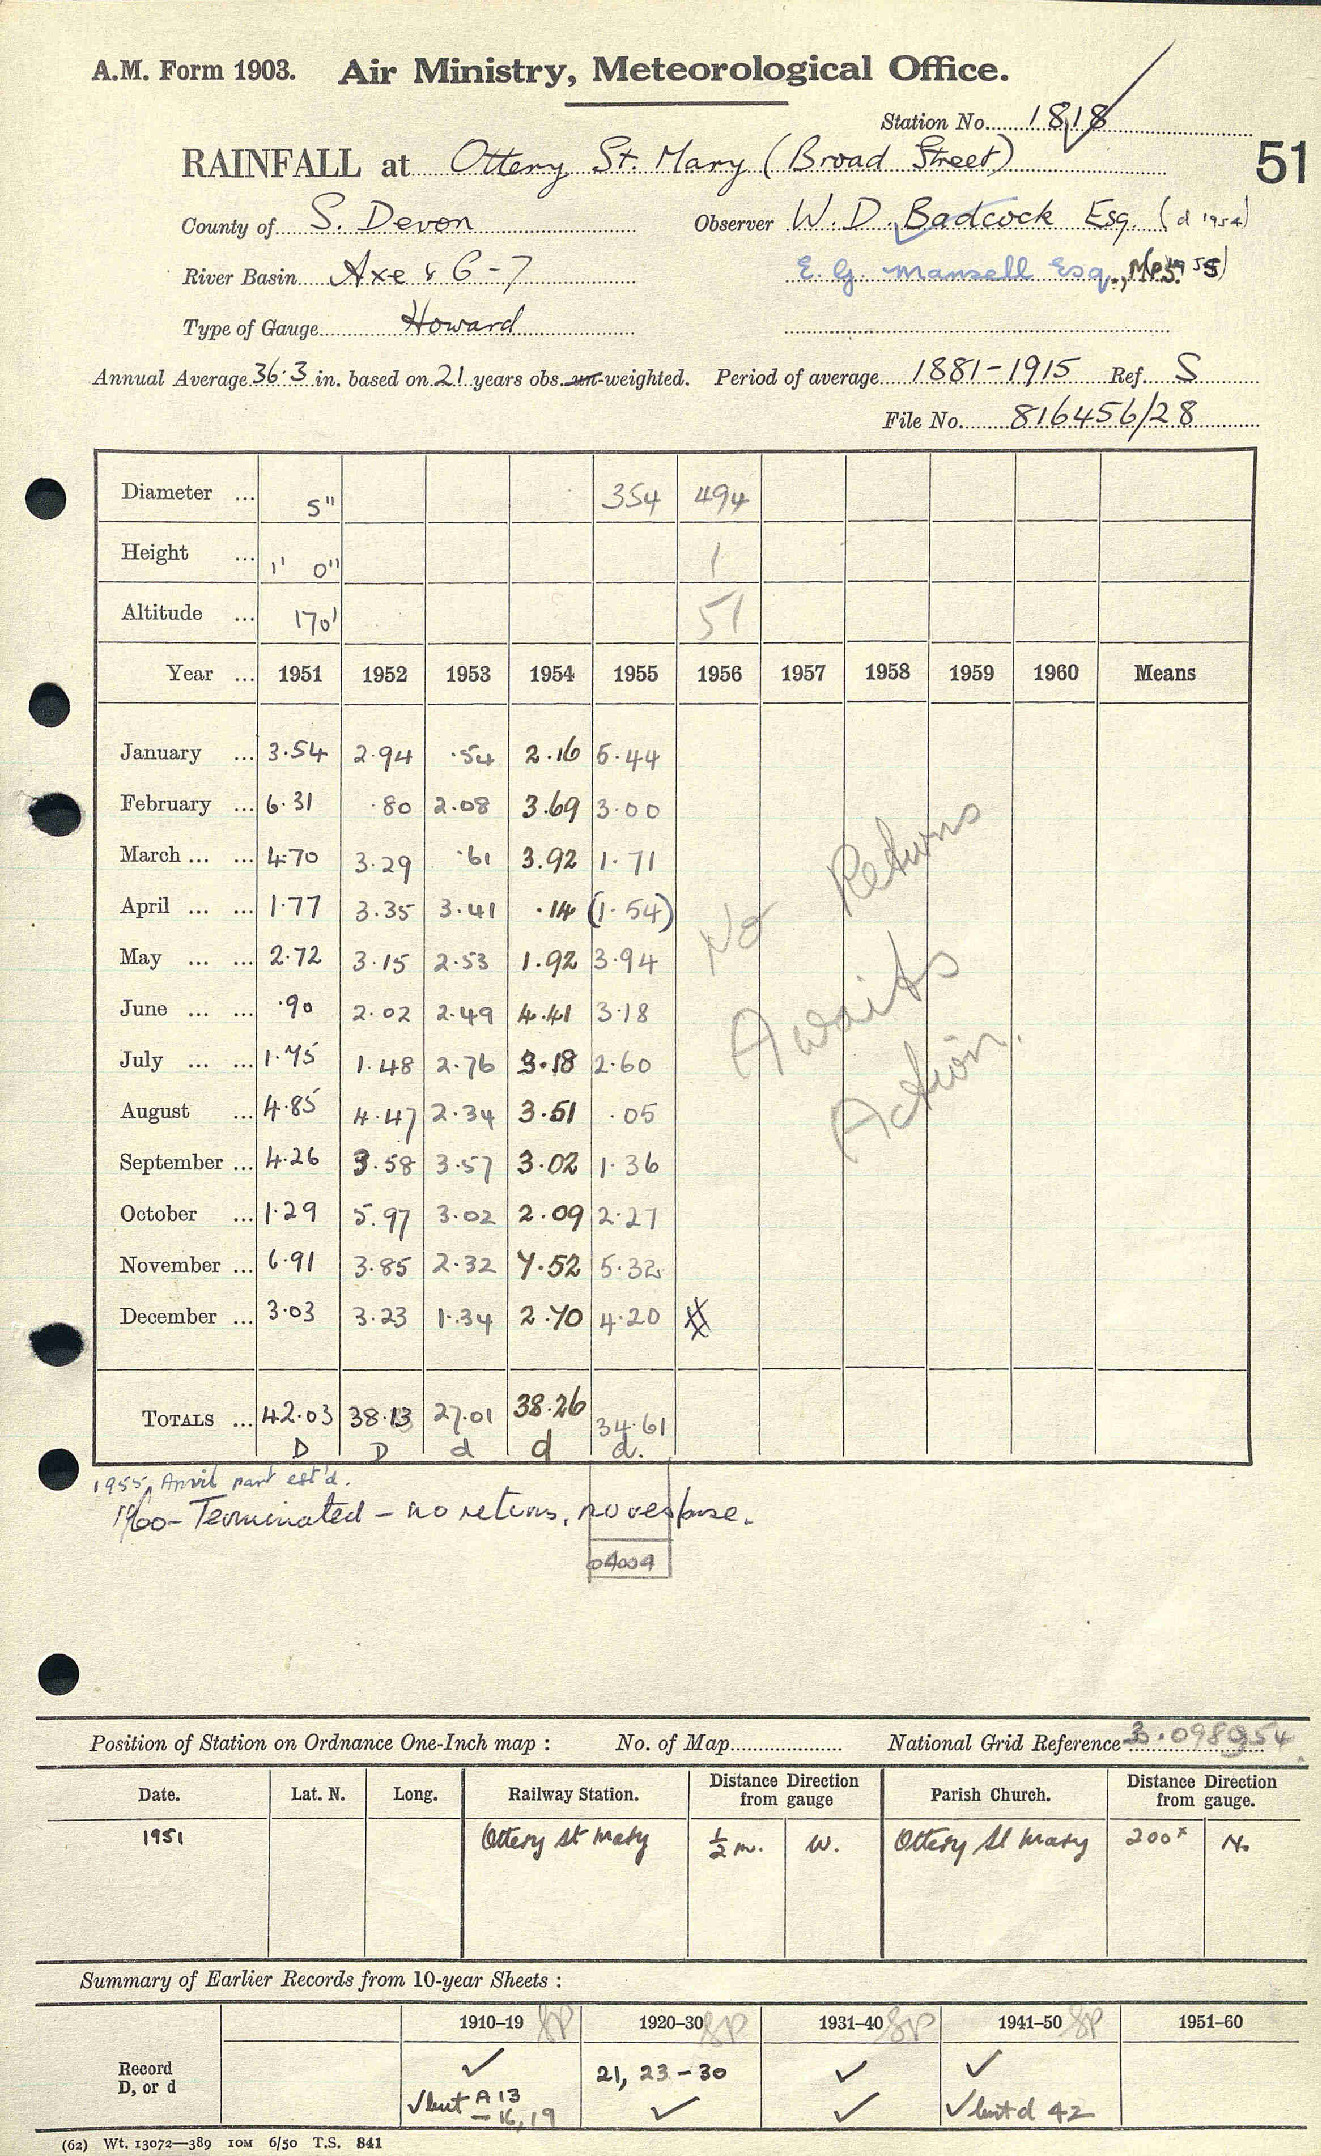 A.M. Form 1903. Air Ministry, Meteorological Office.
Station No. 1818
RAINFALL at Ottery St. Mary (Broad Street) 51
County of S. Devon Observer W. D. Badcock Esq. (d 1954)
River Basin Axe & 6-7 E. G. Mansell Esq., M.P.S.
Type of Gauge Howard
Annual Average 36.3 in. based on 21 years obs. un-weighted. Period of average 1881-1915 Ref. S
File No. 816456/28
Diameter ... 5" 354 494
Height ... 1' 0" 1
Altitude ... 170' 51
Year ... 1951 1952 1953 1954 1955 1956 1957 1958 1959 1960 Means
January ... 3.54 2.94 .54 2.16 5.44
February ... 6.31 .80 2.08 3.69 3.00
March ... ... 4.70 3.29 .61 3.92 1.71
April ... ... 1.77 3.35 3.41 .14 (1.54)
May ... ... 2.72 3.15 2.53 1.92 3.94
June ... ... .90 2.02 2.49 4.41 3.18
July ... ... 1.75 1.48 2.76 3.18 2.60
August ... 4.85 4.47 2.34 3.51 .05
September ... 4.26 3.58 3.57 3.02 1.36
October ... 1.29 5.97 3.02 2.09 2.27
November ... 6.91 3.85 2.32 7.52 5.32
December ... 3.03 3.23 1.34 2.70 4.20
No Returns
Awaits
Action.
TOTALS ... 42.03 38.13 27.01 38.26 34.61
D D d d d.
1955, April part est'd.
1960 - Terminated - no returns, no response.
04009
Position of Station on Ordnance One-Inch map : No. of Map National Grid Reference 3.098954
Date. Lat. N. Long. Railway Station. Distance Direction from gauge Parish Church. Distance Direction from gauge.
1951 Ottery St Mary ½ m. W. Ottery St Mary 200x N.
Summary of Earlier Records from 10-year Sheets :
1910–19 SP 1920–30 SP 1931–40 SP 1941–50 SP 1951–60
Record ✓ 21, 23-30 ✓ ✓
D, or d ✓ but A 13 - 16, 19 ✓ ✓ ✓ but d 42
(62) Wt. 13072—389 10M 6/50 T.S. 841